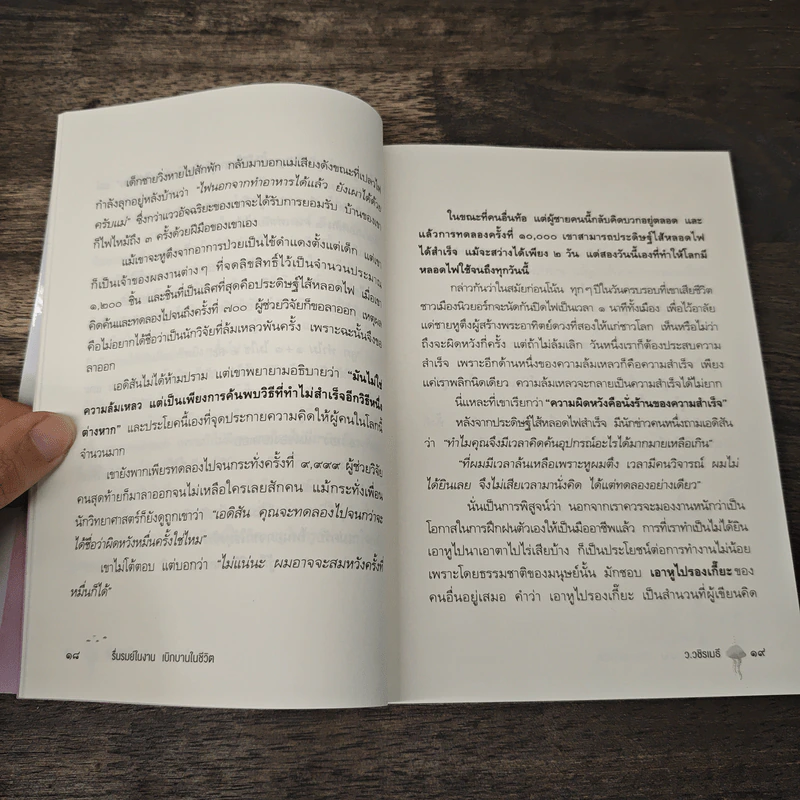 เด็กชายวิ่งหายไปสักพัก กลับมาบอกแม่เสียงดังขณะที่เปลวไฟ
กำลังลุกอยู่หลังบ้านว่า “ไฟนอกจากทำอาหารได้แล้ว ยังเผาโต๊ะได้ด้วย
ครับแม่” ซึ่งกว่าแววอัจฉริยะของเขาจะได้รับการยอมรับ บ้านของเขา
ก็ไฟไหม้ถึง ๓ ครั้งด้วยฝีมือของเขาเอง
แม้เขาจะหูตึงจากอาการป่วยเป็นไข้ดำแดงตั้งแต่เด็ก แต่เขา
ก็เป็นเจ้าของผลงานต่างๆ ที่จดลิขสิทธิ์ไว้เป็นจำนวนประมาณ
๑,๒๐๐ ชิ้น และชิ้นที่เป็นเลิศที่สุดคือประดิษฐ์ไส้หลอดไฟ เมื่อเขา
คิดค้นและทดลองไปจนถึงครั้งที่ ๗๐๐ ผู้ช่วยวิจัยก็ขอลาออก เหตุผล
คือไม่อยากได้ชื่อว่าเป็นนักวิจัยที่ล้มเหลวพันครั้ง เพราะฉะนั้นจึงขอ
ลาออก
เอดิสันไม่ได้ห้ามปราม แต่เขาพยายามอธิบายว่า “มันไม่ใช่
ความล้มเหลว แต่เป็นเพียงการค้นพบวิธีที่ทำไม่สำเร็จอีกวิธีหนึ่ง
ต่างหาก” และประโยคนี้เองที่จุดประกายความคิดให้ผู้คนในโลกนี้
จำนวนมาก
เขายังพากเพียรทดลองไปจนกระทั่งครั้งที่ ๙,๙๙๙ ผู้ช่วยวิจัย
คนสุดท้ายก็มาลาออกจนไม่เหลือใครเลยสักคน แม้กระทั่งเพื่อน
นักวิทยาศาสตร์ก็ยังดูถูกเขาว่า “เอดิสัน คุณจะทดลองไปจนกว่าจะ
ได้ชื่อว่าผิดหวังหมื่นครั้งใช่ไหม”
เขาไม่โต้ตอบ แต่บอกว่า “ไม่แน่นะ ผมอาจจะสมหวังครั้งที่
หมื่นก็ได้”
๑๘ รื่นรมย์ในงาน เบิกบานในชีวิต
ในขณะที่คนอื่นท้อ แต่ผู้ชายคนนี้กลับคิดบวกอยู่ตลอด และ
แล้วการทดลองครั้งที่ ๑๐,๐๐๐ เขาสามารถประดิษฐ์ไส้หลอดไฟ
ได้สำเร็จ แม้จะสว่างได้เพียง ๒ วัน แต่สองวันนี้เองที่ทำให้โลกมี
หลอดไฟใช้จนถึงทุกวันนี้
กล่าวกันว่าในสมัยก่อนโน้น ทุกๆ ปีในวันครบรอบที่เขาเสียชีวิต
ชาวเมืองนิวยอร์กจะนัดกันปิดไฟเป็นเวลา ๑ นาทีทั้งเมือง เพื่อไว้อาลัย
แด่ชายหูตึงผู้สร้างพระอาทิตย์ดวงที่สองให้แก่ชาวโลก เห็นหรือไม่ว่า
ถึงจะผิดหวังกี่ครั้ง แต่ถ้าไม่ล้มเลิก วันหนึ่งเราก็ต้องประสบความ
สำเร็จ เพราะอีกด้านหนึ่งของความล้มเหลวก็คือความสำเร็จ เพียง
แค่เราพลิกนิดเดียว ความล้มเหลวจะกลายเป็นความสำเร็จได้ไม่ยาก
นี่แหละที่เขาเรียกว่า “ความผิดหวังคือนั่งร้านของความสำเร็จ”
หลังจากประดิษฐ์ไส้หลอดไฟสำเร็จ มีนักข่าวคนหนึ่งถามเอดิสัน
ว่า “ทำไมคุณจึงมีเวลาคิดค้นอุปกรณ์อะไรได้มากมายเหลือเกิน”
“ที่ผมมีเวลาล้นเหลือเพราะหูผมตึง เวลามีคนวิจารณ์ ผมไม่
ได้ยินเลย จึงไม่เสียเวลามานั่งคิด ได้แต่ทดลองอย่างเดียว”
นั่นเป็นการพิสูจน์ว่า นอกจากเราควรจะมองงานหนักว่าเป็น
โอกาสในการฝึกฝนตัวเองให้เป็นมืออาชีพแล้ว การที่เราทำเป็นไม่ได้ยิน
เอาหูไปนาเอาตาไปไร่เสียบ้าง ก็เป็นประโยชน์ต่อการทำงานไม่น้อย
เพราะโดยธรรมชาติของมนุษย์นั้น มักชอบ เอาหูไปรองเกี๊ยะของ
คนอื่นอยู่เสมอ คำว่า เอาหูไปรองเกี๊ยะ เป็นสำนวนที่ผู้เขียนคิด
ว.วชิรเมธี ๑๙